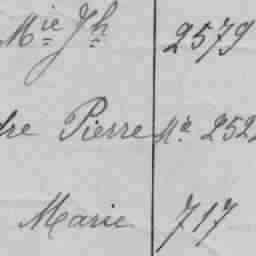 Mie Jh 2579
dre Pierre Me 252
Marie 717